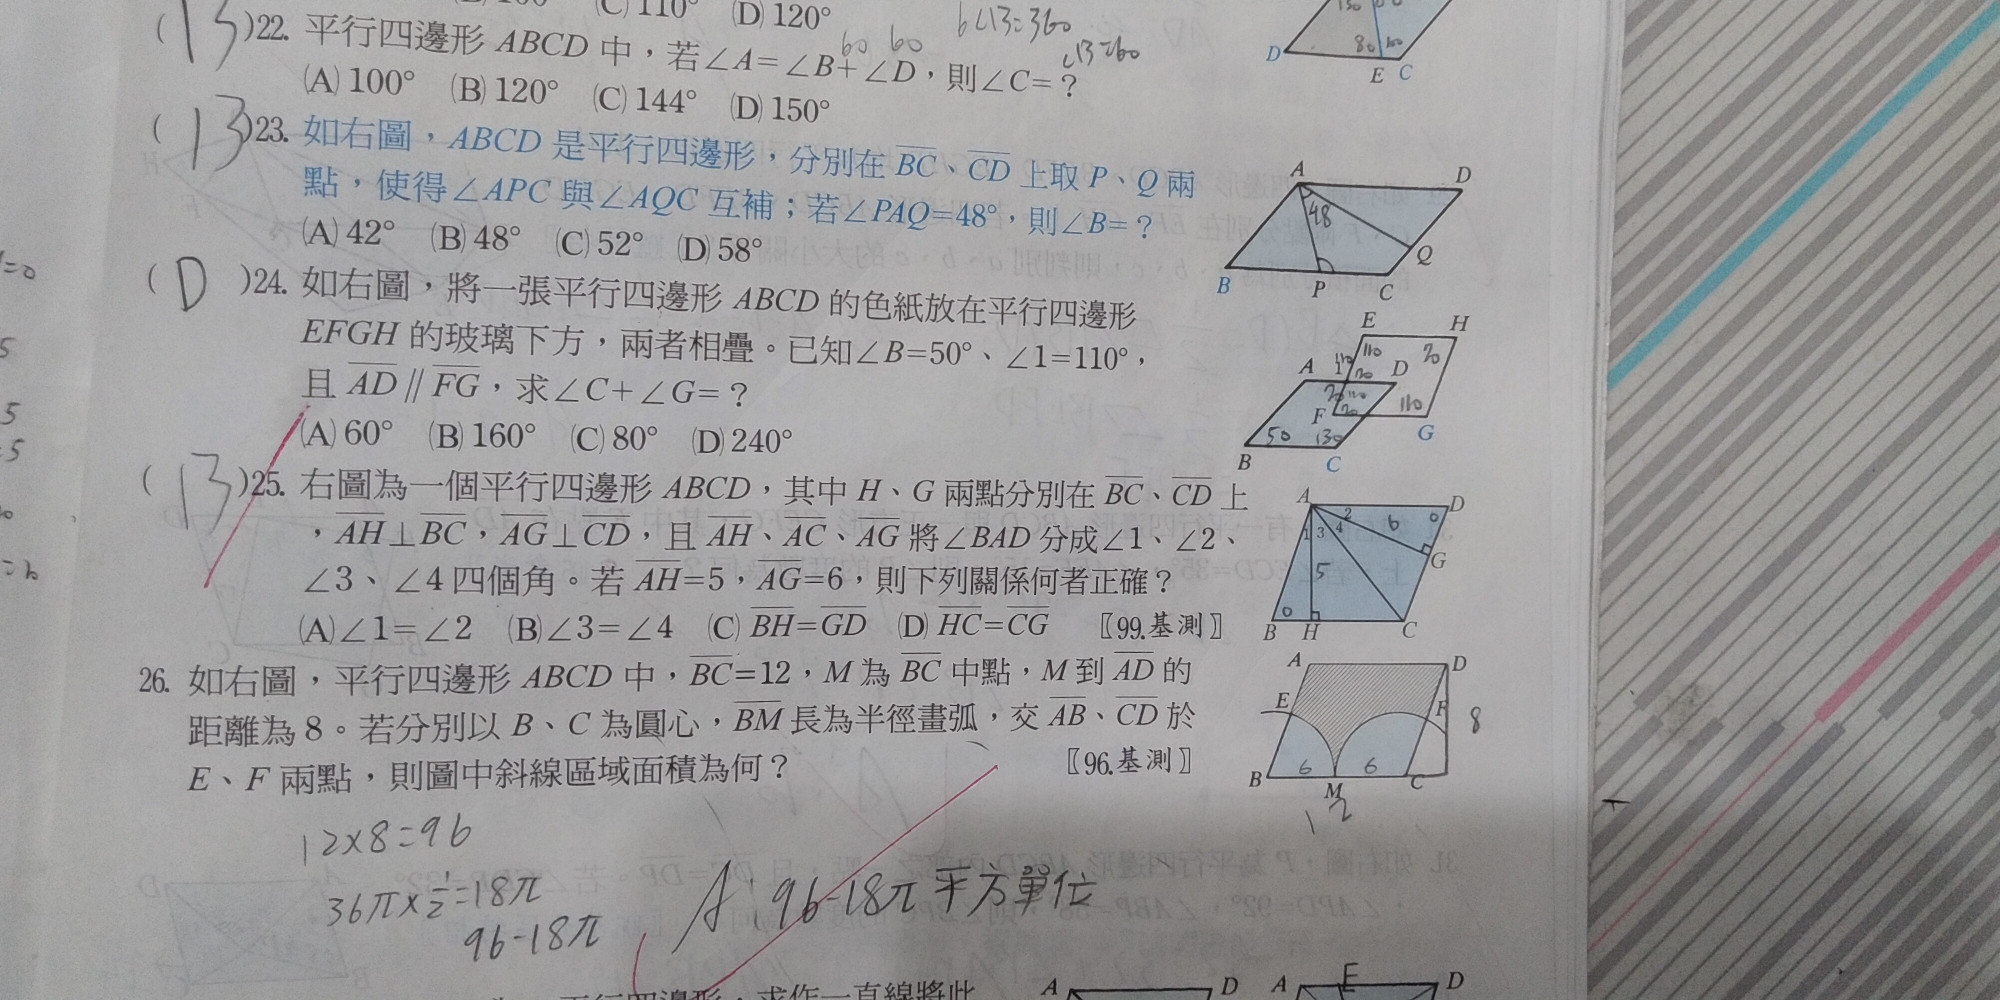 (C) 110° (D) 120°
6∠B=360
∠B=60
130
80
D
E C
(B)22. 平行四邊形 ABCD 中，若∠A=∠B+∠D，則∠C=？
60 60
(A) 100° (B) 120° (C) 144° (D) 150°
(B)23. 如右圖，ABCD 是平行四邊形，分別在 BC、CD 上取 P、Q 兩
點，使得∠APC 與∠AQC 互補；若∠PAQ=48°，則∠B=？
(A) 42° (B) 48° (C) 52° (D) 58°
A D
48
Q
B P C
(D)24. 如右圖，將一張平行四邊形 ABCD 的色紙放在平行四邊形
EFGH 的玻璃下方，兩者相疊。已知∠B=50°、∠1=110°，
且 AD∥FG，求∠C+∠G=？
(A) 60° (B) 160° (C) 80° (D) 240°
E H
110 110 70
A 1 70 D
70 110
F 70 110
G
50 130
B C
(B)25. 右圖為一個平行四邊形 ABCD，其中 H、G 兩點分別在 BC、CD 上
，AH⊥BC，AG⊥CD，且 AH、AC、AG 將∠BAD 分成∠1、∠2、
∠3、∠4 四個角。若 AH=5，AG=6，則下列關係何者正確？
(A)∠1=∠2 (B)∠3=∠4 (C) BH=GD (D) HC=CG 〖99.基測〗
A D
2 6
1 3 4
G
5
B H C
26. 如右圖，平行四邊形 ABCD 中，BC=12，M 為 BC 中點，M 到 AD 的
距離為 8。若分別以 B、C 為圓心，BM 長為半徑畫弧，交 AB、CD 於
E、F 兩點，則圖中斜線區域面積為何？ 〖96.基測〗
A D
E F 8
6 6
B M C
12
12×8=96
36π×1/2=18π
96-18π
A：96-18π平方單位
平行四邊形，求作一直線將此
A D A E D